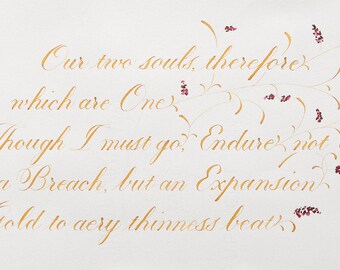 Our two souls, therefore
which are One
Though I must go, Endure not
a Breach, but an Expansion
gold to aery thinness beat